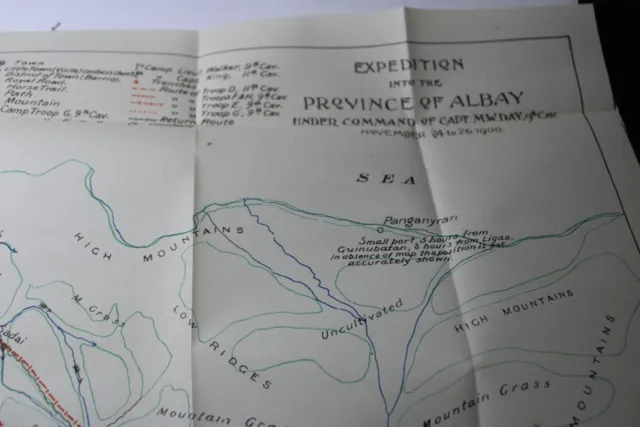 EXPEDITION
INTO THE
PROVINCE OF ALBAY
UNDER COMMAND OF CAPT. M.W. DAY, 9th CAV.
NOVEMBER 24 to 26, 1900.
Town
Little Town (Visita)
District of Town (Barrio)
Royal Road.
Horse Trail.
Path
Mountain
Camp Troop G, 9th Cav.
1st Camp Lieut. Walker, 9th Cav.
2d " Capt. King, 11th Cav.
Trenches
Route Troop D, 11th Cav.
Troops F & H, 9th Cav.
Troop E, 9th Cav.
Troop G, 9th Cav.
Return Route
SEA
Panganyran
Small port, 5 hours from
Guinubatan, 6 hours from Ligao,
in absence of map the position is not
accurately shown.
HIGH MOUNTAINS
M. Grass
LOW RIDGES
Uncultivated
HIGH MOUNTAINS
MOUNTAINS
Mountain Grass
Mountain Gra